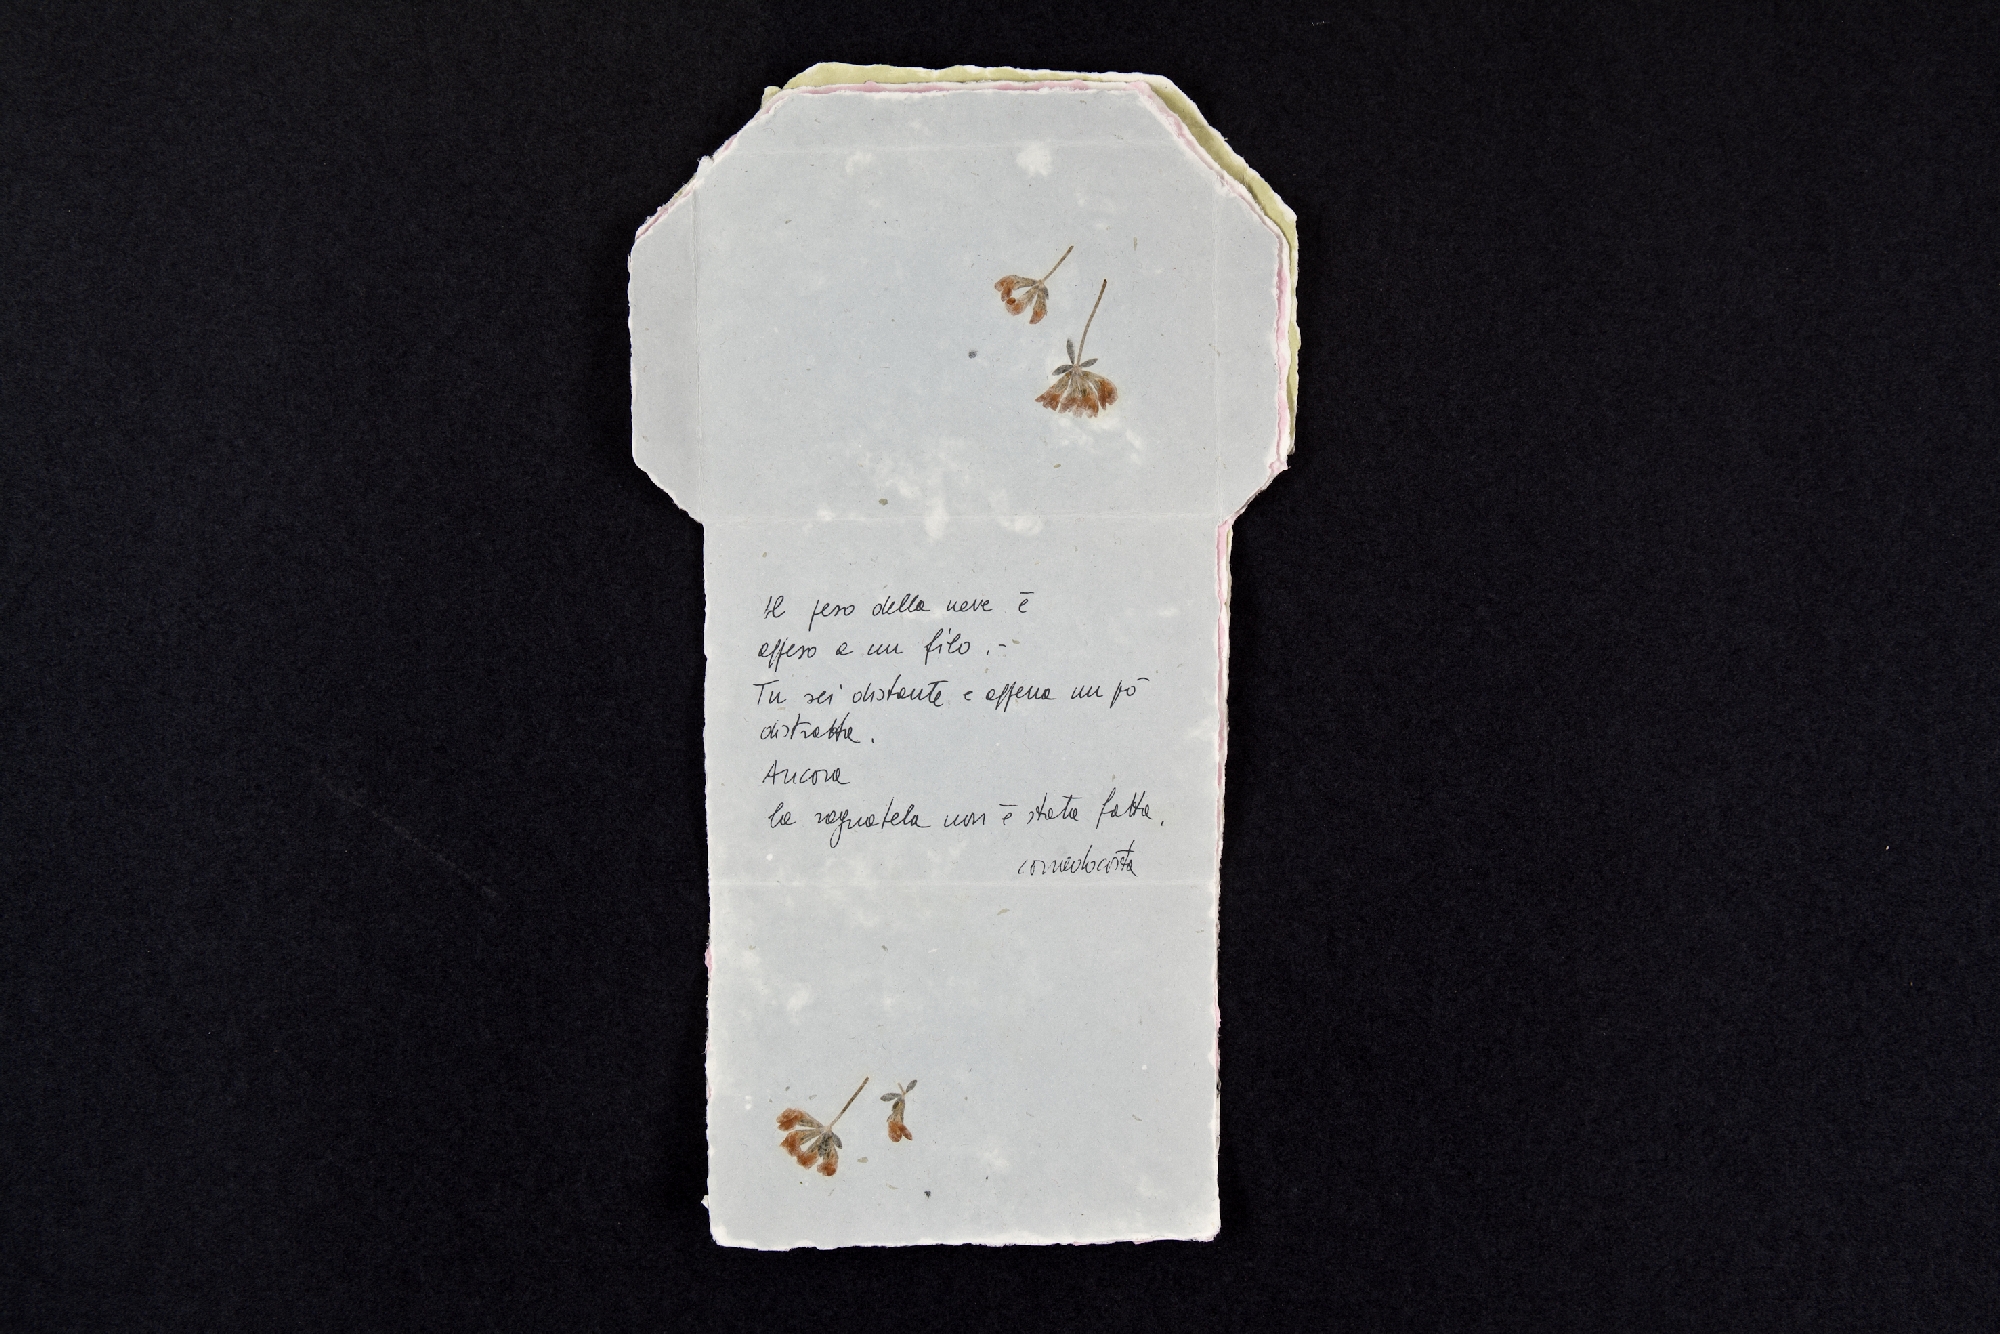 Il peso della neve è
appeso a un filo .-
Tu sei distante e appena un pò
distratta.
Ancora
la ragnatela non è stata fatta.
corradocosta